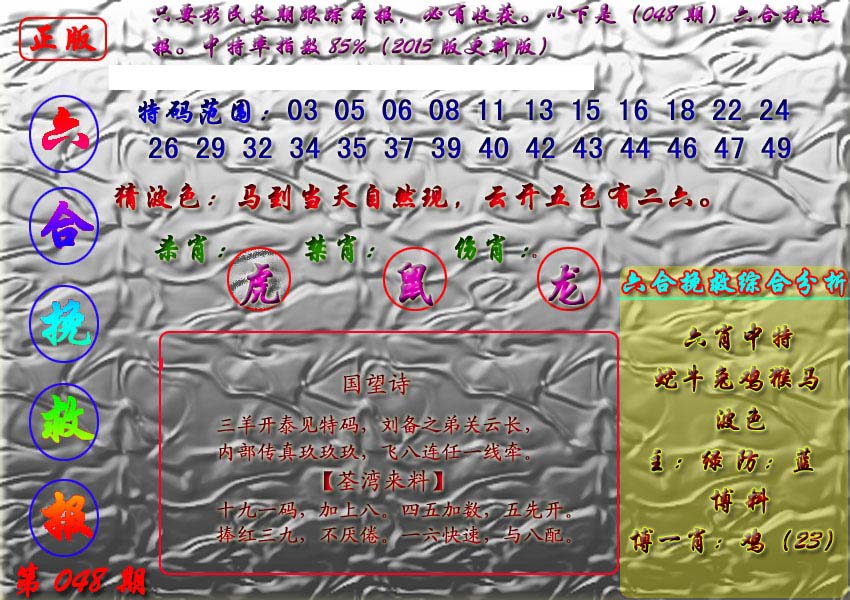 正版
只要彩民长期跟踪本报，必有收获。以下是（048期）六合挽救
报。中特率指数85%（2015版更新版）
六合挽救报
第048期
特码范围：03 05 06 08 11 13 15 16 18 22 24
26 29 32 34 35 37 39 40 42 43 44 46 47 49
猜波色：马到当天自然现，云开五色有二六。
杀肖：虎 禁肖：鼠 伤肖：龙
国望诗
三羊开泰见特码，刘备之弟关云长，
内部传真玖玖玖，飞八连任一线牵。
【荃湾来料】
十九一码，加上八。四五加数，五先开。
捧红三九，不厌倦。一六快速，与八配。
六合挽救综合分析
六肖中特
蛇牛兔鸡猴马
波色
主：绿防：蓝
博料
博一肖：鸡（23）